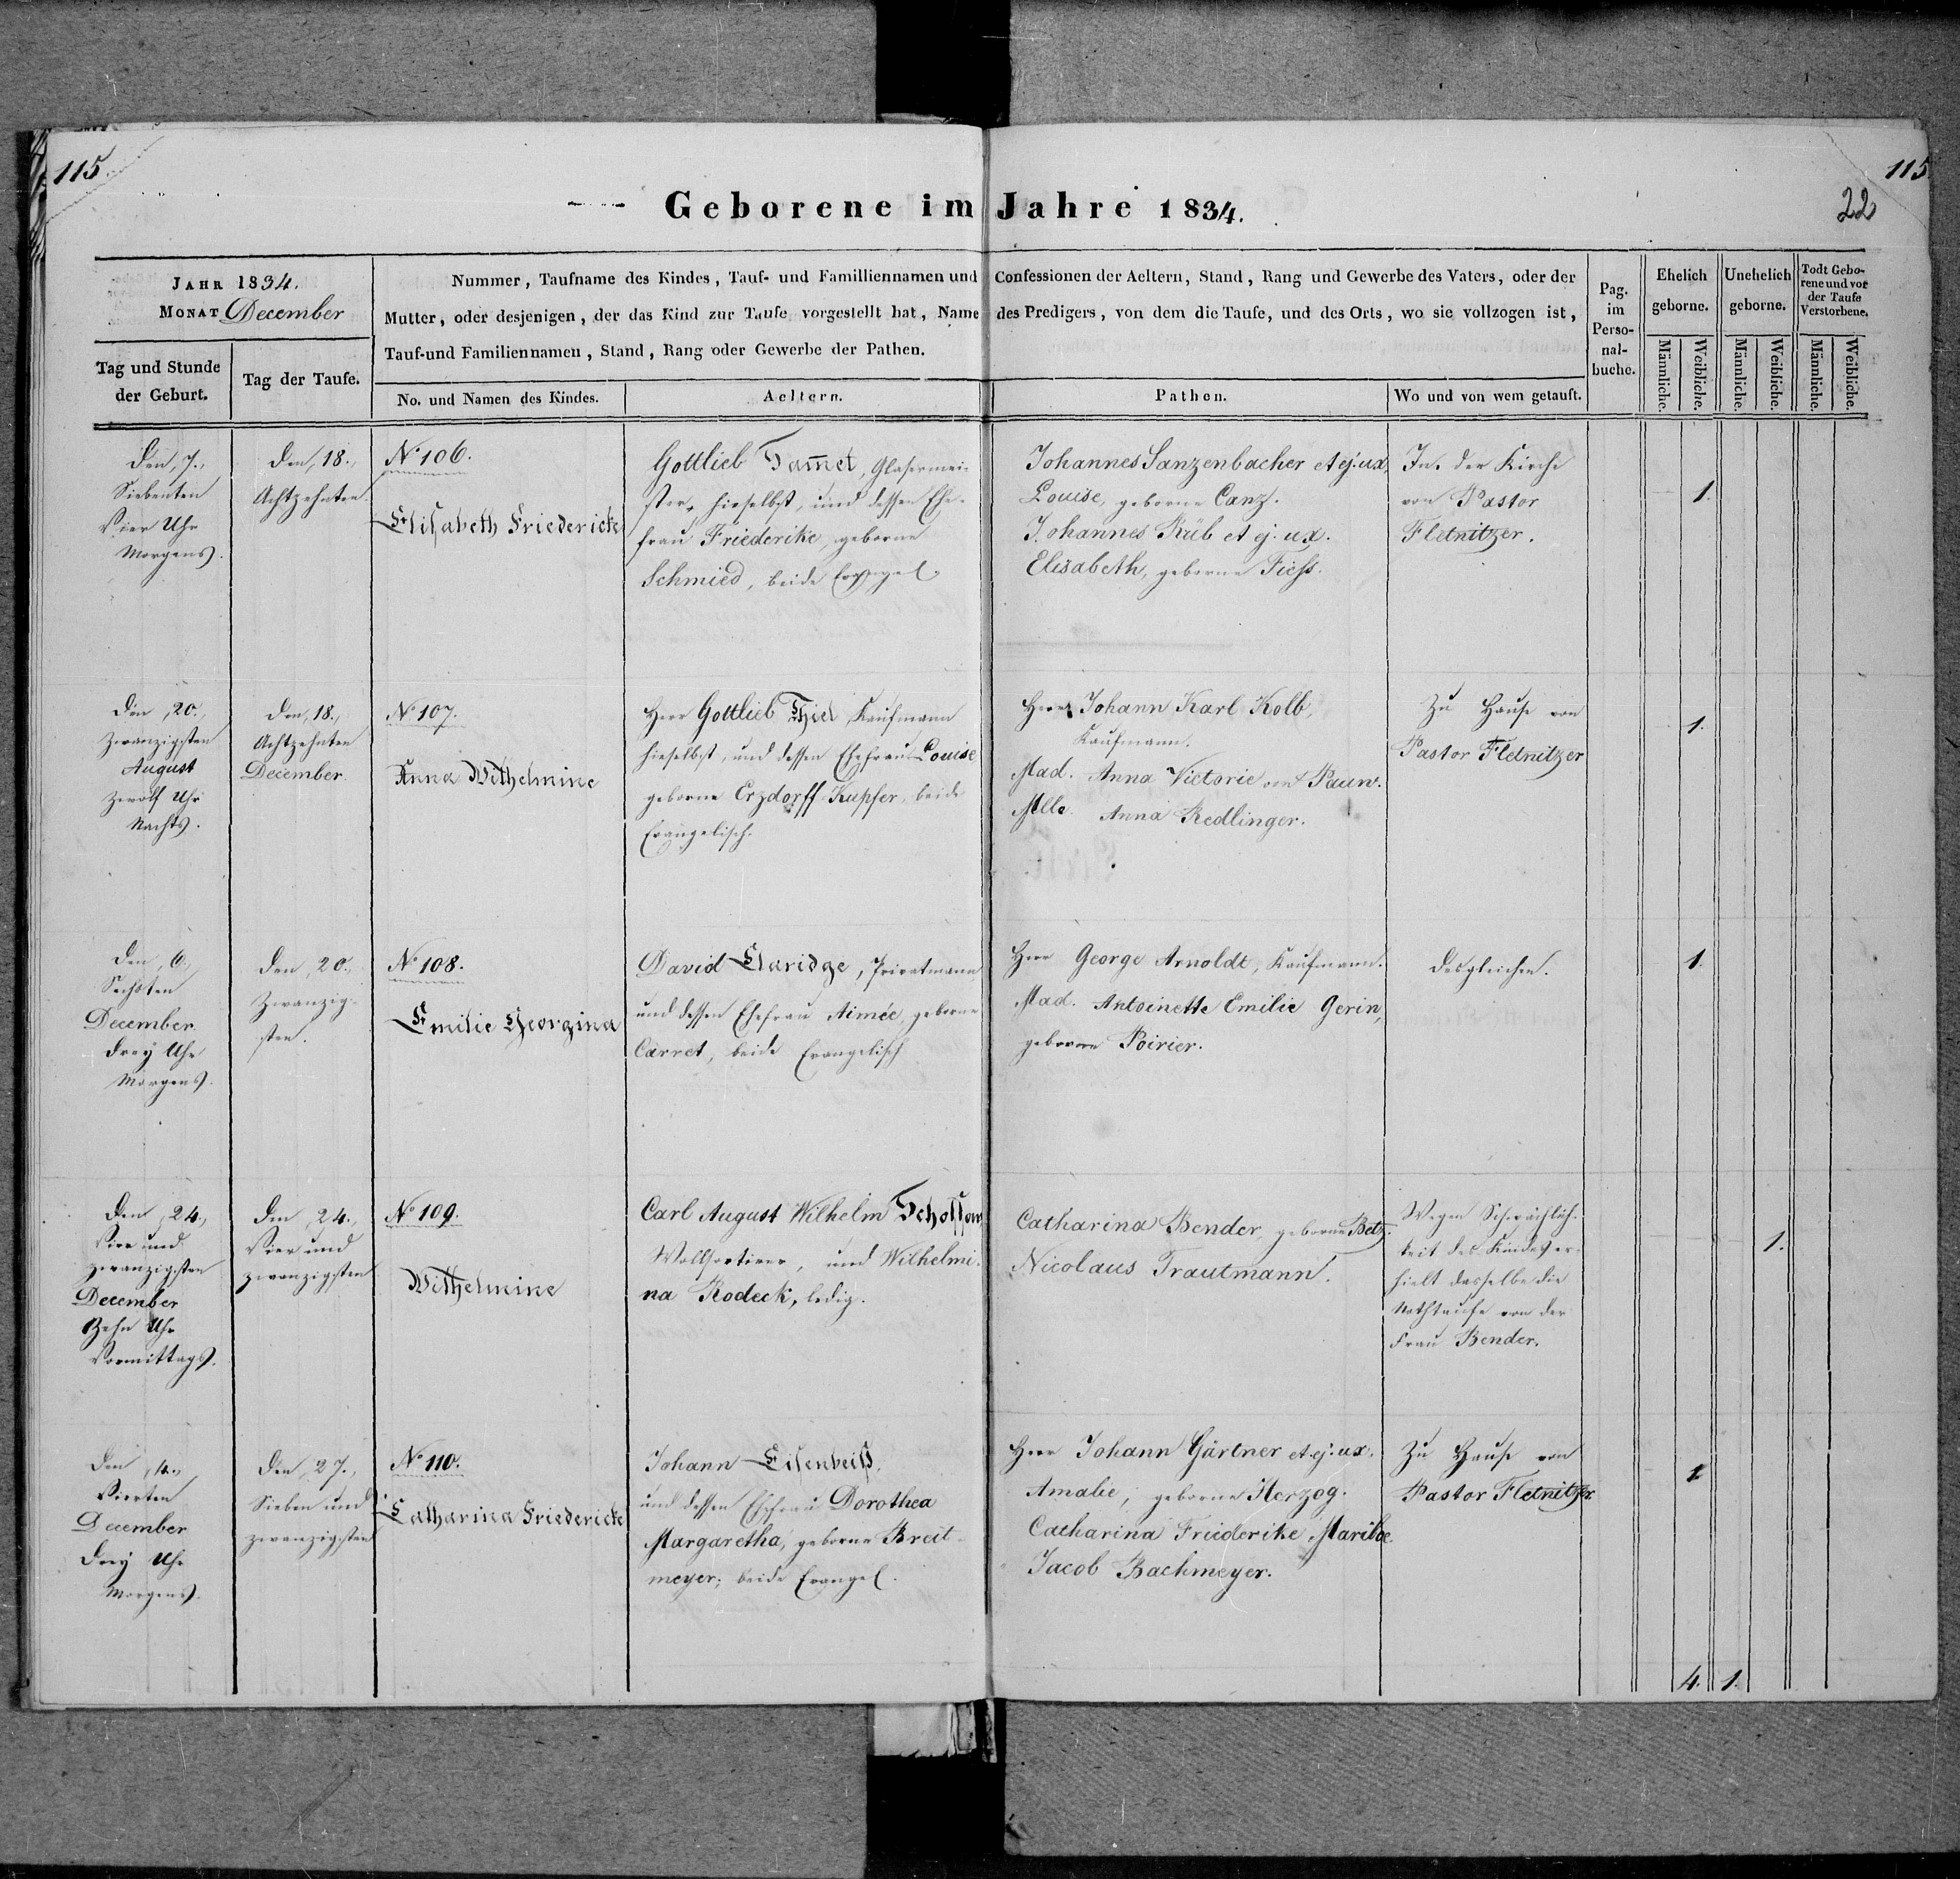 115.
115
22
Geborene im Jahre 1834.
JAHR 1834.
MONAT December
Nummer, Taufname des Kindes, Tauf- und Familliennamen und Confessionen der Aeltern, Stand, Rang und Gewerbe des Vaters, oder der
Mutter, oder desjenigen, der das Kind zur Taufe vorgestellt hat, Name des Predigers, von dem die Taufe, und des Orts, wo sie vollzogen ist,
Tauf-und Familiennamen, Stand, Rang oder Gewerbe der Pathen.
Tag und Stunde
der Geburt.
Tag der Taufe.
No. und Namen des Kindes.
Aeltern.
Pathen.
Wo und von wem getauft.
Pag.
im
Perso-
nal-
buche.
Ehelich
geborne.
Unehelich
geborne.
Todt Gebo-
rene und vor
der Taufe
Verstorbene.
Männliche.
Weibliche.
Männliche.
Weibliche.
Männliche.
Weibliche.
Den, 7.,
Siebenten
Vier Uhr
Morgens.
Den, 18.,
Achtzehnten.
No 106.
Elisabeth Friedericke
Gottlieb Tam̅et, Glasermei-
ster, hieselbst, und dessen Ehe-
frau Friederike, geborne
Schmied, beide Evangel.
Johannes Sanzenbacher et ej. ux.
Louise, geborne Canz.
Johannes Rüb et ej. ux.
Elisabeth, geborne Fiess.
In der Kirche
von Pastor
Fletnitzer.
1.
Den, 20.,
Zwanzigsten
August
Zwölf Uhr
Nachts.
Den, 18.,
Achtzehnten
December.
No 107.
Anna Wilhelmine
Herr Gottlieb Thiel, Kaufmann
hieselbst, und dessen Ehefrau Louise
geborne Erzdorff-Kupfer, beide
Evangelisch.
Herr Johann Karl Kolb,
Kaufmann.
Mad. Anna Victorie von Paun.
Mlle. Anna Redlinger.
Zu Hause von
Pastor Fletnitzer
1.
Den, 6.,
Sechsten
December.
Drey Uhr
Morgens.
Den, 20.,
Zwanzig-
sten.
No 108.
Emilie Georgina
David Claridge, Privatmann
und dessen Ehefrau Aimée, geborne
Carret, beide Evangelisch
Herr George Arnoldt, Kaufmann.
Mad. Antoinette Emilie Gerin,
geborne Poirier.
desgleichen.
1.
Den, 24.,
Vier und
zwanzigsten
December
Zehn Uhr
Vormittags.
Den, 24.,
Vier und
zwanzigsten
No 109.
Wilhelmine
Carl August Wilhelm
Wollsortirer, und Wilhelmi-
na Rodeck, ledig.
Catharina Bender, geborne Betz.
Nicolaus Trautmann.
Wegen Schwächlich-
keit des Kindes er-
hielt dasselbe die
Nothtaufe von der
Frau Bender.
1.
Den, 4.,
Vierten
December
Drey Uhr
Morgens.
Den, 27.,
Sieben und
zwanzigsten
No 110.
Catharina Friedericke
Johann Eisenbeiß,
und dessen Ehefrau Dorothea
Margaretha, geborne Breit-
meyer; beide Evangel.
Herr Johann Gärtner et ej. ux.
Amalie, geborne Herzog.
Catharina Friederike
Jacob Bachmeyer.
Zu Hause von
Pastor Fletnitzer.
1
4. 1.